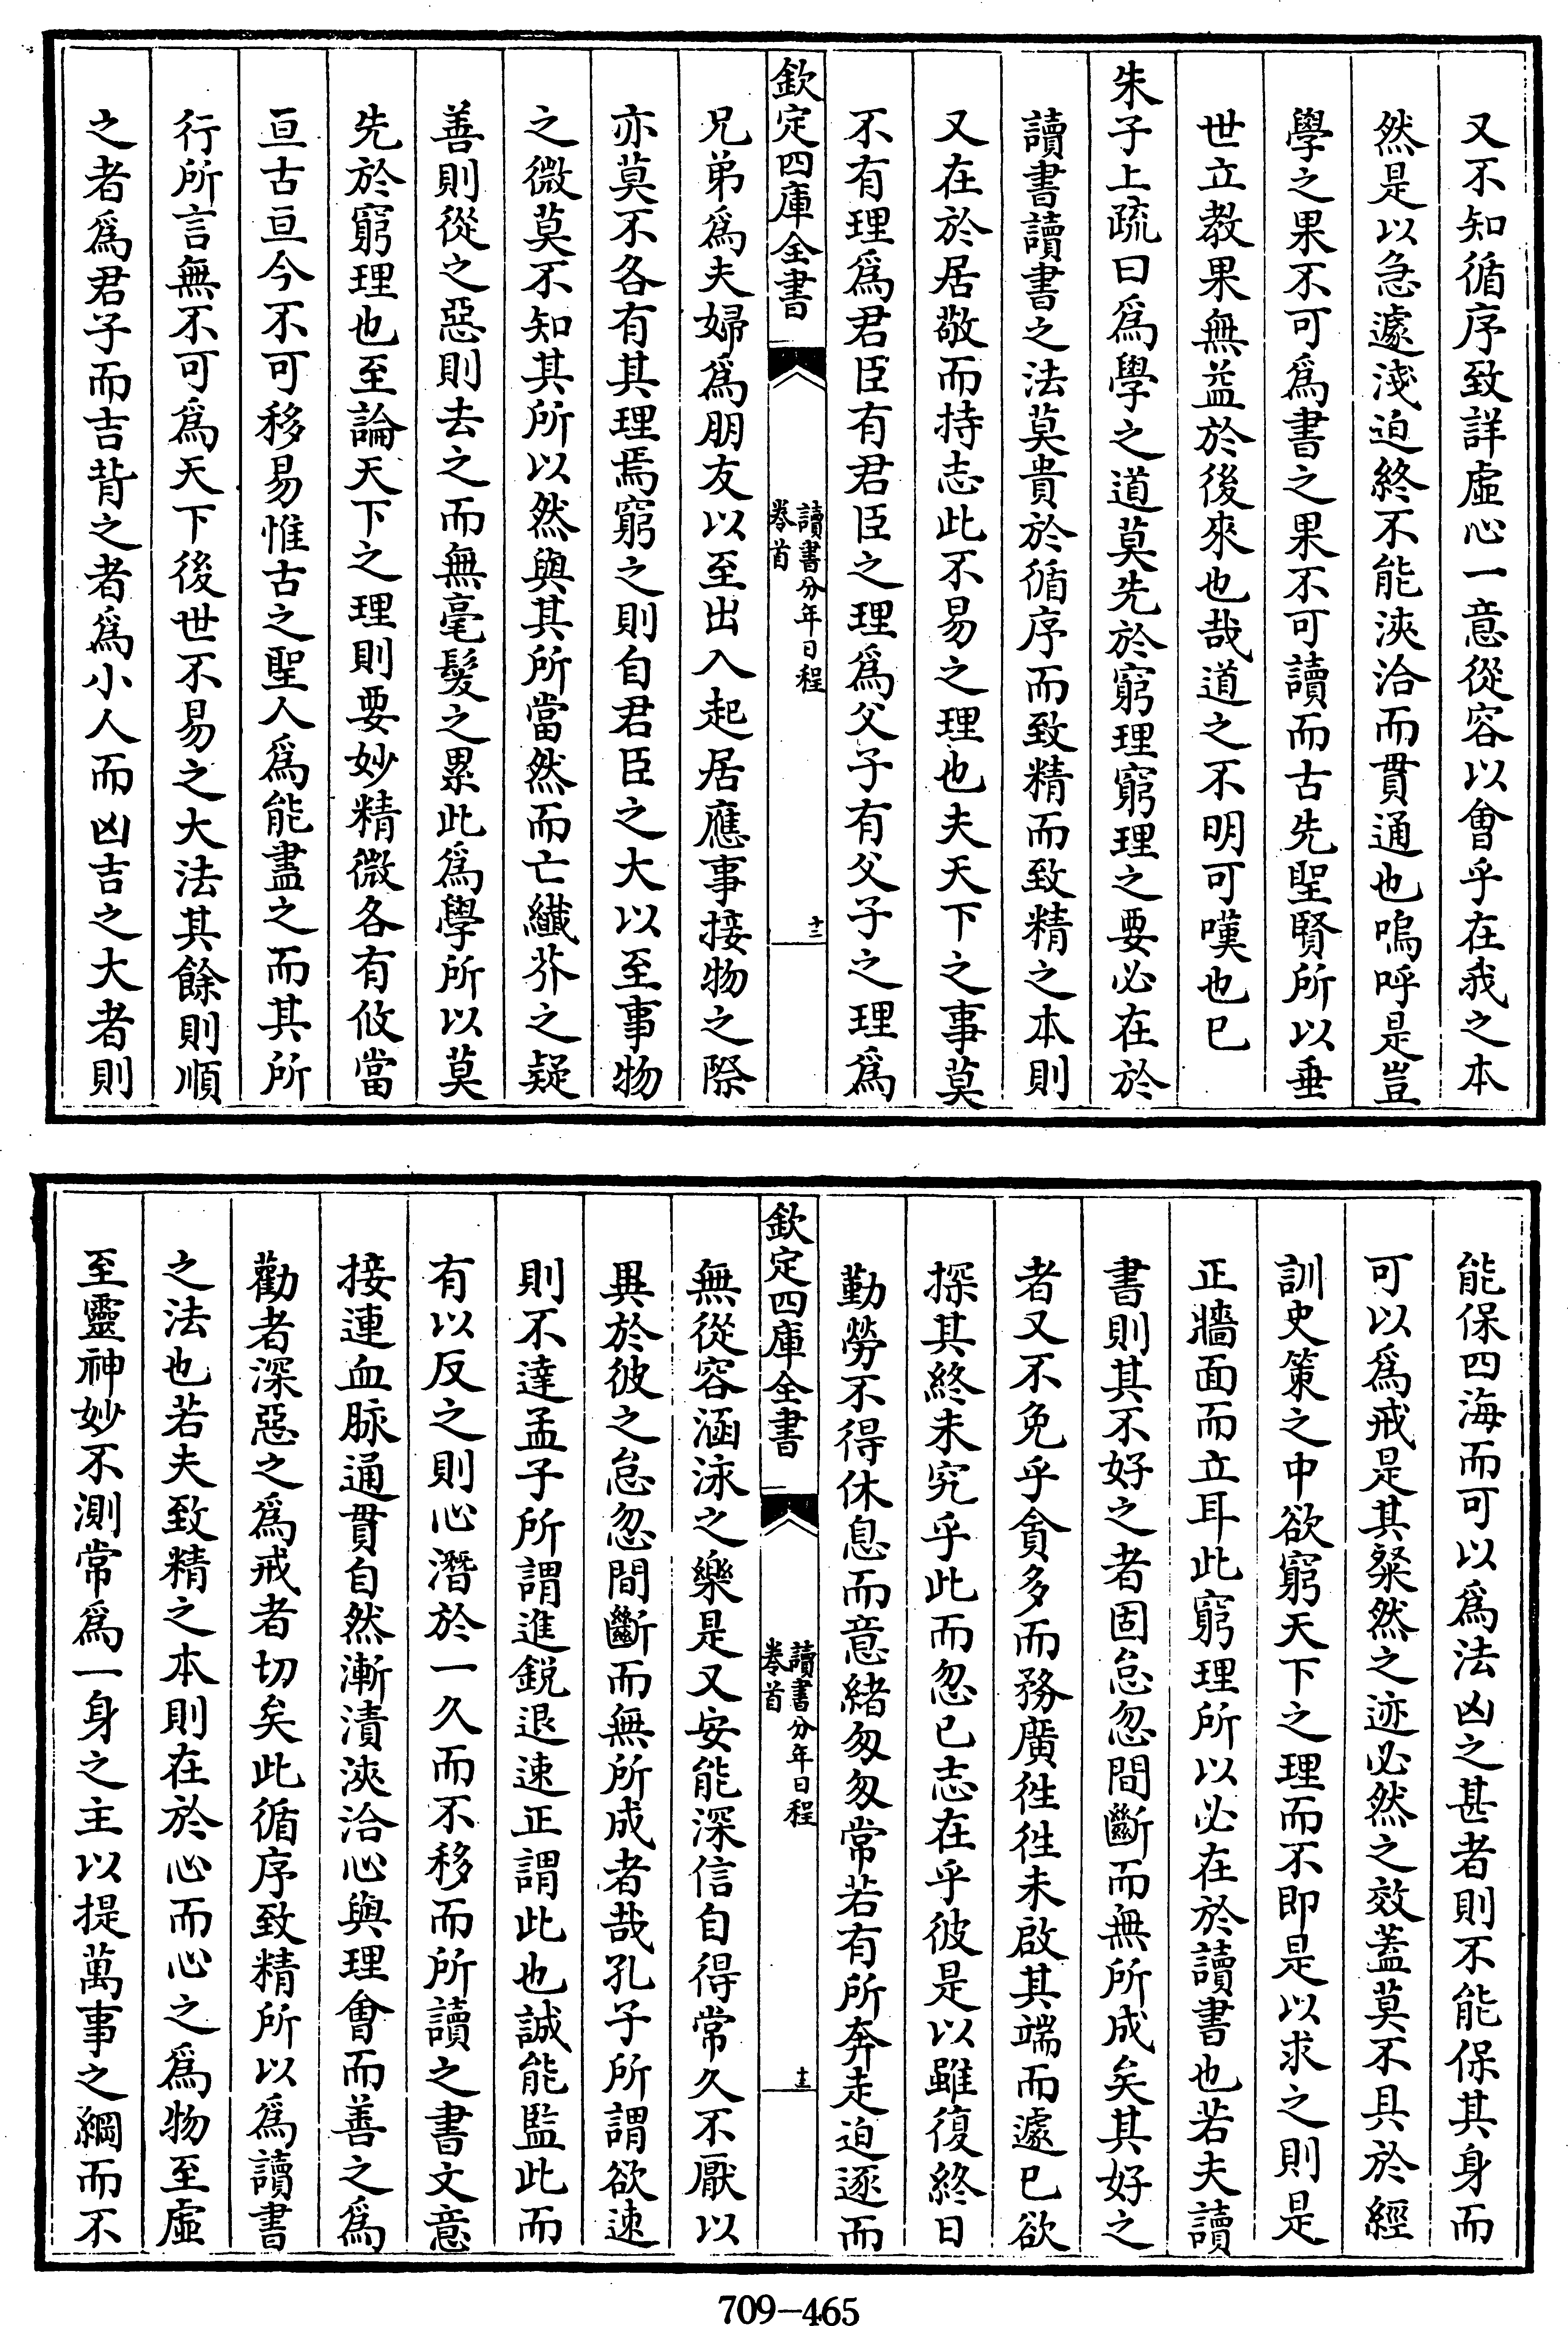 又不知循序致詳虛心一意從容以會乎在我之本
然是以急遽淺迫終不能浹洽而貫通也嗚呼是豈
學之果不可爲書之果不可讀而古先聖賢所以垂
世立教果無益於後來也哉道之不明可嘆也已
朱子上疏曰爲學之道莫先於窮理窮理之要必在於
讀書讀書之法莫貴於循序而致精而致精之本則
又在於居敬而持志此不易之理也夫天下之事莫
不有理爲君臣有君臣之理爲父子有父子之理爲
欽定四庫全書
讀書分年日程
卷首
十二
兄弟爲夫婦爲朋友以至出入起居應事接物之際
亦莫不各有其理焉窮之則自君臣之大以至事物
之微莫不知其所以然與其所當然而亡纎芥之疑
善則從之惡則去之而無毫髮之累此爲學所以莫
先於窮理也至論天下之理則要妙精微各有攸當
亘古亘今不可移易惟古之聖人爲能盡之而其所
行所言無不可爲天下後世不易之大法其餘則順
之者爲君子而吉背之者爲小人而凶吉之大者則
能保四海而可以爲法凶之甚者則不能保其身而
可以爲戒是其粲然之迹必然之效蓋莫不具於經
訓史策之中欲窮天下之理而不即是以求之則是
正牆面而立耳此窮理所以必在於讀書也若夫讀
書則其不好之者固怠忽間斷而無所成矣其好之
者又不免乎貪多而務廣徃徃未啟其端而遽已欲
探其終未究乎此而忽已志在乎彼是以雖復終日
勤勞不得休息而意緒匆匆常若有所奔走迫逐而
欽定四庫全書
讀書分年日程
卷首
十三
無從容涵泳之樂是又安能深信自得常久不厭以
異於彼之怠忽間斷而無所成者哉孔子所謂欲速
則不達孟子所謂進銳退速正謂此也誠能監此而
有以反之則心潛於一久而不移而所讀之書文意
接連血脉通貫自然漸漬浹洽心與理會而善之爲
勸者深惡之爲戒者切矣此循序致精所以爲讀書
之法也若夫致精之本則在於心而心之爲物至虛
至靈神妙不測常爲一身之主以提萬事之綱而不
709-465